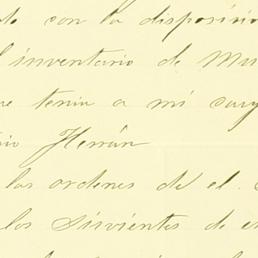 con la disposició
inventario de Mu
tenia a mi carg
Herrán
las ordenes de el.
los Sirvientes de